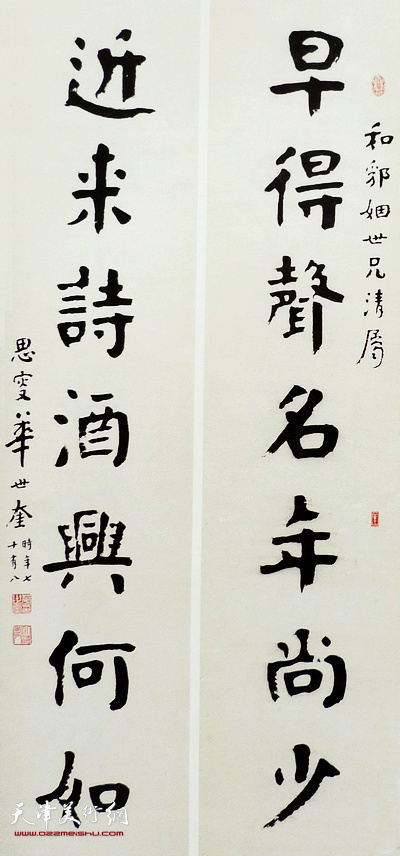 和邹姻世兄清属
早得聲名年尚少
近来詩酒興何如
思闇華世奎
時年七
十有八
天津美術網
www.022meishu.com